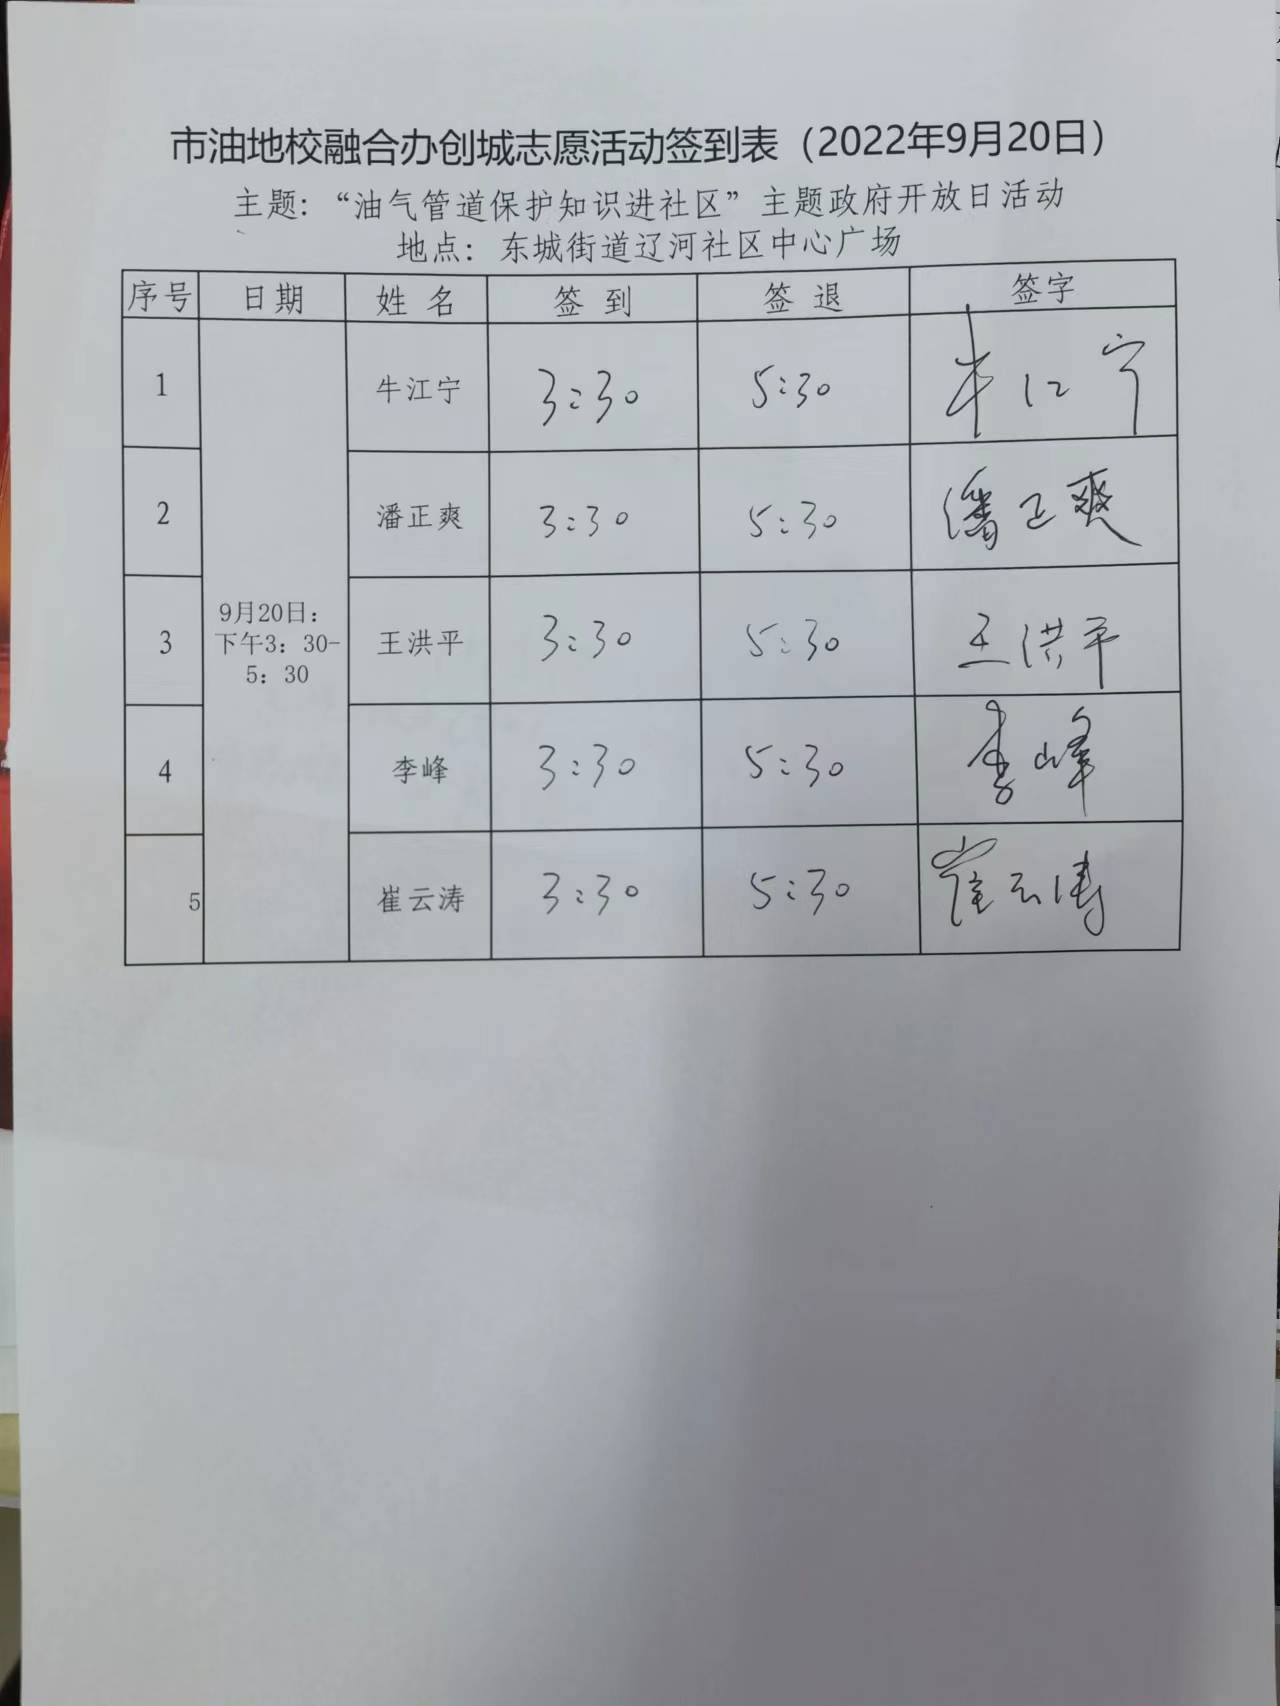 市油地校融合办创城志愿活动签到表（2022年9月20日）
主题：“油气管道保护知识进社区”主题政府开放日活动
地点：东城街道辽河社区中心广场
序号 日期 姓名 签到 签退 签字
1 牛江宁 3:30 5:30 牛江宁
2 潘正爽 3:30 5:30 潘正爽
9月20日：
下午3：30-
5：30
3 王洪平 3:30 5:30 王洪平
4 李峰 3:30 5:30 李峰
5 崔云涛 3:30 5:30 崔云涛